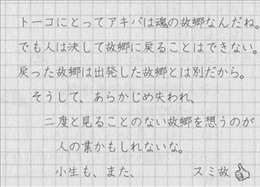 トーコにとってアキバは魂の故郷なんだね。
でも人は決して故郷に戻ることはできない。
戻った故郷は出発した故郷とは別だから。
そうして、あらかじめ失われ、
二度と見ることのない故郷を想うのが
人の業かもしれないな。
小生も、また、 スミ故